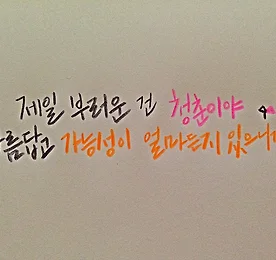 제일 부러운 건 청춘이야
름답고 가능성이 얼마든지 있으니